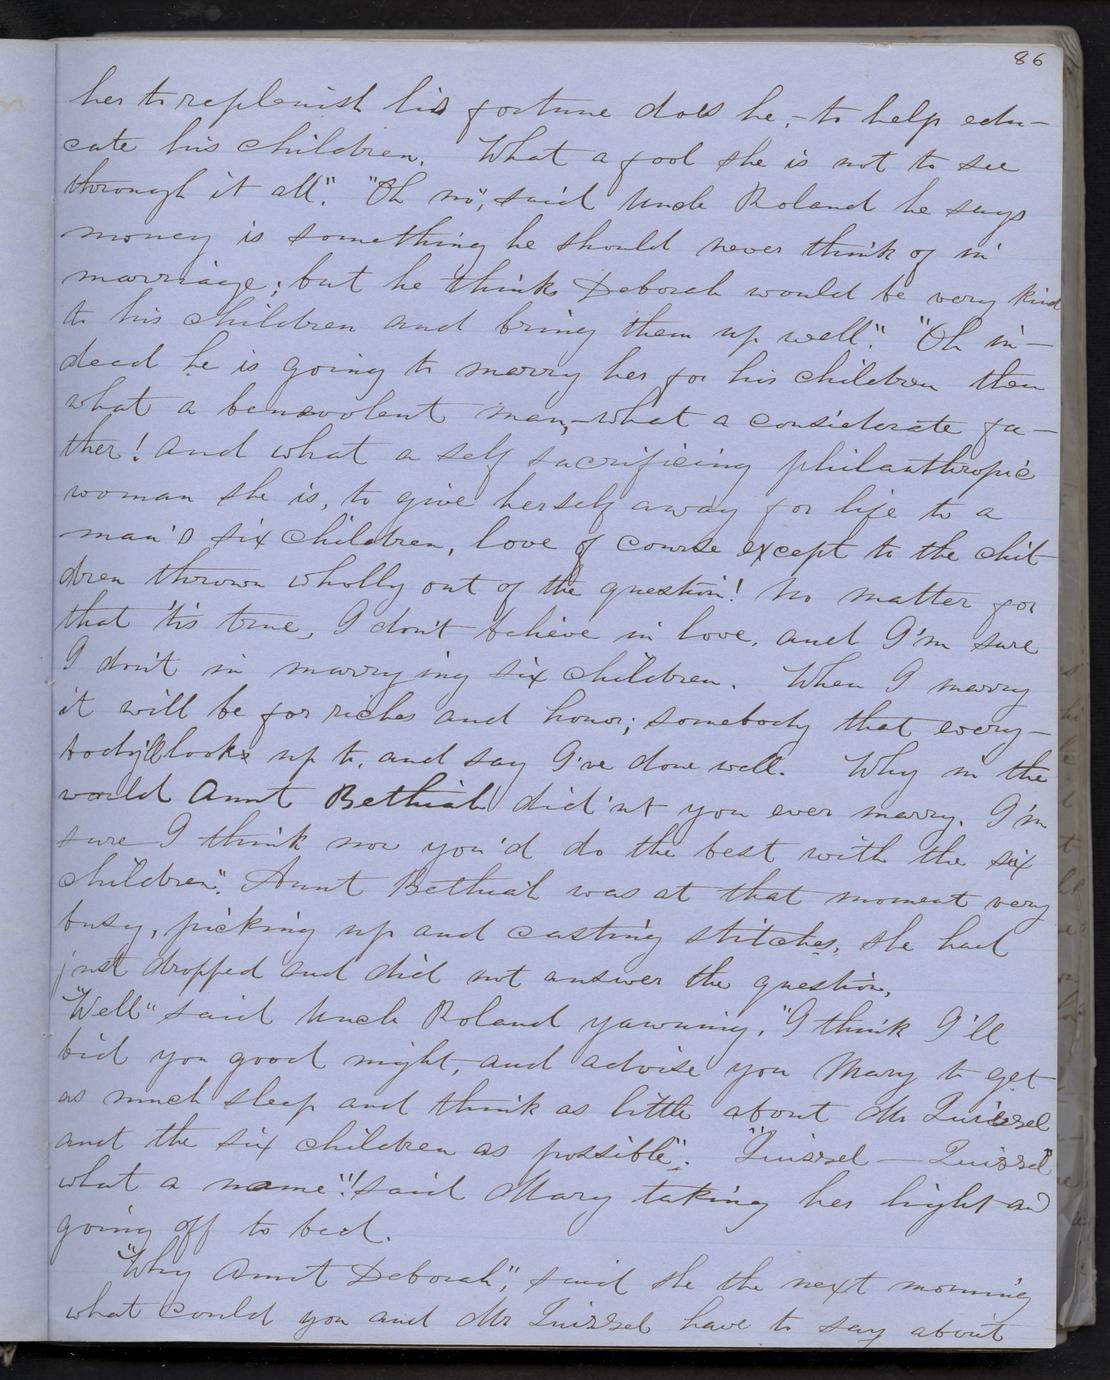 86
her to replenish his fortune does he,-to help edu-
cate his children. What a fool she is not to see
through it all". "Oh no", said Uncle Roland he says
money is something he should never think of in
marriage; but he thinks Deborah would be very kind
to his children and bring them up well". "Oh in-
deed he is going to marry her for his children then
what a benevolent man,-what a considerate fa-
ther! And what a self sacrificing philanthropic
woman she is, to give herself away for life to a
man's six children, love of course except to the chil
dren thrown wholly out of the question! No matter for
that 'tis true, I don't believe in love, and I'm sure
I don't in marrying six children. When I marry
it will be for riches and honor; somebody that every-
body'll look up to, and say I've done well. Why in the
world Aunt Bethiah did'nt you ever marry. I'm
sure I think now you'd do the best with the six
children". Aunt Bethiah was at that moment very
busy, picking up and casting stitches, she had
just dropped and did not answer the question.
"Well" said Uncle Roland yawning, "I think I'll
bid you good night, and advise you Mary to get
as much sleep and think as little about Mr Quissel
and the six children as possible". "Quissel — Quissel
what a name"! said Mary taking her light and
going off to bed.
"Why Aunt Deborah", said she the next morning
what could you and Mr Quissel have to say about